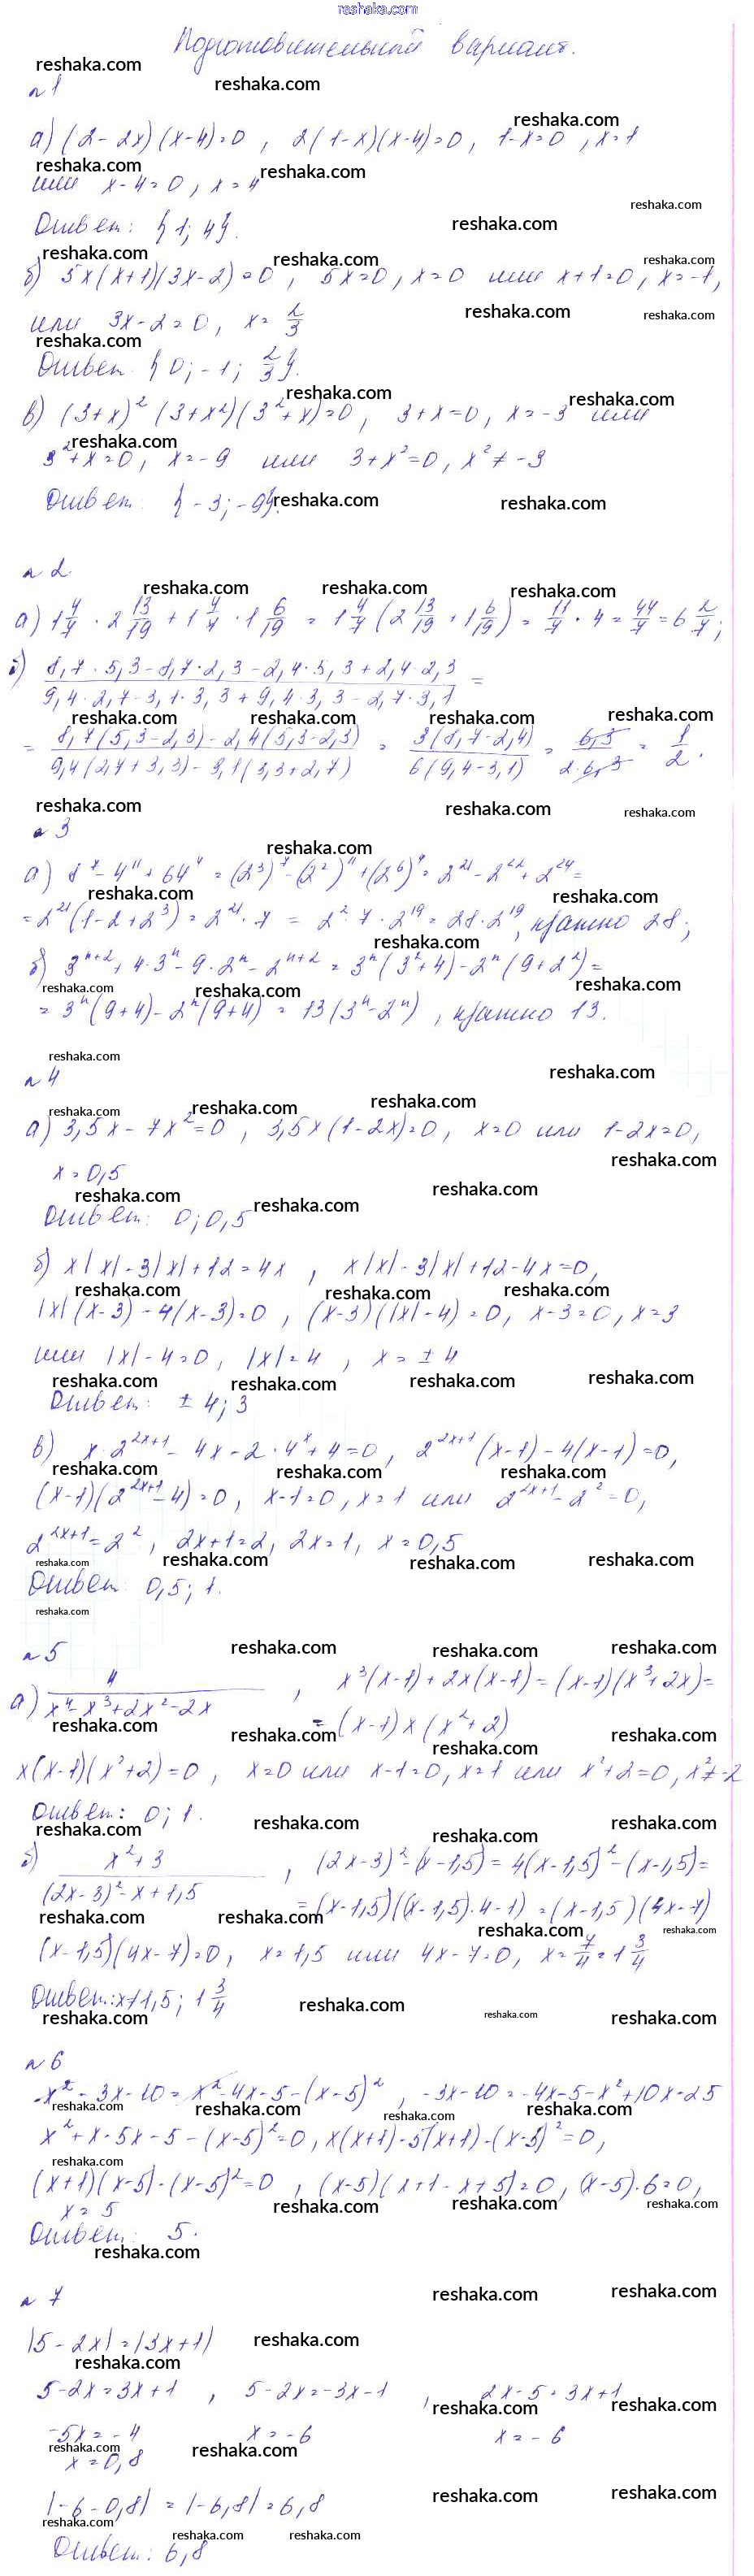 reshaka.com
Подготовительный вариант.
№1
а) (2-2x)(x-4)=0, 2(1-x)(x-4)=0, 1-x=0, x=1
или x-4=0, x=4
Ответ: {1; 4}.
б) 5x(x+1)(3x-2)=0, 5x=0, x=0 или x+1=0, x=-1,
или 3x-2=0, x=2/3
Ответ {0; -1; 2/3}.
в) (3+x)²(3+x²)(3²+x)=0, 3+x=0, x=-3 или
3²+x=0, x=-9 или 3+x²=0, x²≠-3
Ответ: {-3; -9}.
№2.
а) 1 4/7 · 2 13/19 + 1 4/7 · 1 6/19 = 1 4/7 (2 13/19 + 1 6/19) = 11/7 · 4 = 44/7 = 6 2/7;
б) (8,7·5,3-8,7·2,3-2,4·5,3+2,4·2,3)/(9,4·2,7-3,1·3,3+9,4·3,3-2,7·3,1) =
= (8,7(5,3-2,3)-2,4(5,3-2,3))/(9,4(2,7+3,3)-3,1(3,3+2,7)) = 3(8,7-2,4)/6(9,4-3,1) = 6,3/2·6,3 = 1/2.
№3
а) 8⁷-4¹¹+64⁴ = (2³)⁷-(2²)¹¹+(2⁶)⁴ = 2²¹-2²²+2²⁴ =
= 2²¹(1-2+2³) = 2²¹·7 = 2²·7·2¹⁹ = 28·2¹⁹, кратно 28;
б) 3ⁿ⁺²+4·3ⁿ-9·2ⁿ-2ⁿ⁺² = 3ⁿ(3²+4)-2ⁿ(9+2²) =
= 3ⁿ(9+4)-2ⁿ(9+4) = 13(3ⁿ-2ⁿ), кратно 13.
№4
а) 3,5x-7x²=0, 3,5x(1-2x)=0, x=0 или 1-2x=0,
x=0,5
Ответ: 0; 0,5
б) x|x|-3|x|+12=4x, x|x|-3|x|+12-4x=0,
|x|(x-3)-4(x-3)=0, (x-3)(|x|-4)=0, x-3=0, x=3
или |x|-4=0, |x|=4, x=±4
Ответ: ±4; 3
в) x·2²ˣ⁺¹-4x-2·4ˣ+4=0, 2²ˣ⁺¹(x-1)-4(x-1)=0,
(x-1)(2²ˣ⁺¹-4)=0, x-1=0, x=1 или 2²ˣ⁺¹-2²=0,
2²ˣ⁺¹=2², 2x+1=2, 2x=1, x=0,5
Ответ: 0,5; 1.
№5
а) 4/(x⁴-x³+2x²-2x), x³(x-1)+2x(x-1)=(x-1)(x³+2x)=
=(x-1)x(x²+2)
x(x-1)(x²+2)=0, x=0 или x-1=0, x=1 или x²+2=0, x²≠-2
Ответ: 0; 1.
б) (x²+3)/((2x-3)²-x+1,5), (2x-3)²-(x-1,5)=4(x-1,5)²-(x-1,5)=
=(x-1,5)((x-1,5)·4-1)=(x-1,5)(4x-7)
(x-1,5)(4x-7)=0, x=1,5 или 4x-7=0, x=7/4=1 3/4
Ответ: x≠1,5; 1 3/4
№6
x²-3x-10=x²-4x-5-(x-5)², -3x-10=-4x-5-x²+10x-25
x²+x-5x-5-(x-5)²=0, x(x+1)-5(x+1)-(x-5)²=0,
(x+1)(x-5)-(x-5)²=0, (x-5)(x+1-x+5)=0, (x-5)·6=0,
x=5
Ответ: 5.
№7
|5-2x|=|3x+1|
5-2x=3x+1, 5-2x=-3x-1, 2x-5=3x+1
-5x=-4 x=-6 x=-6
x=0,8
|-6-0,8|=|-6,8|=6,8
Ответ: 6,8